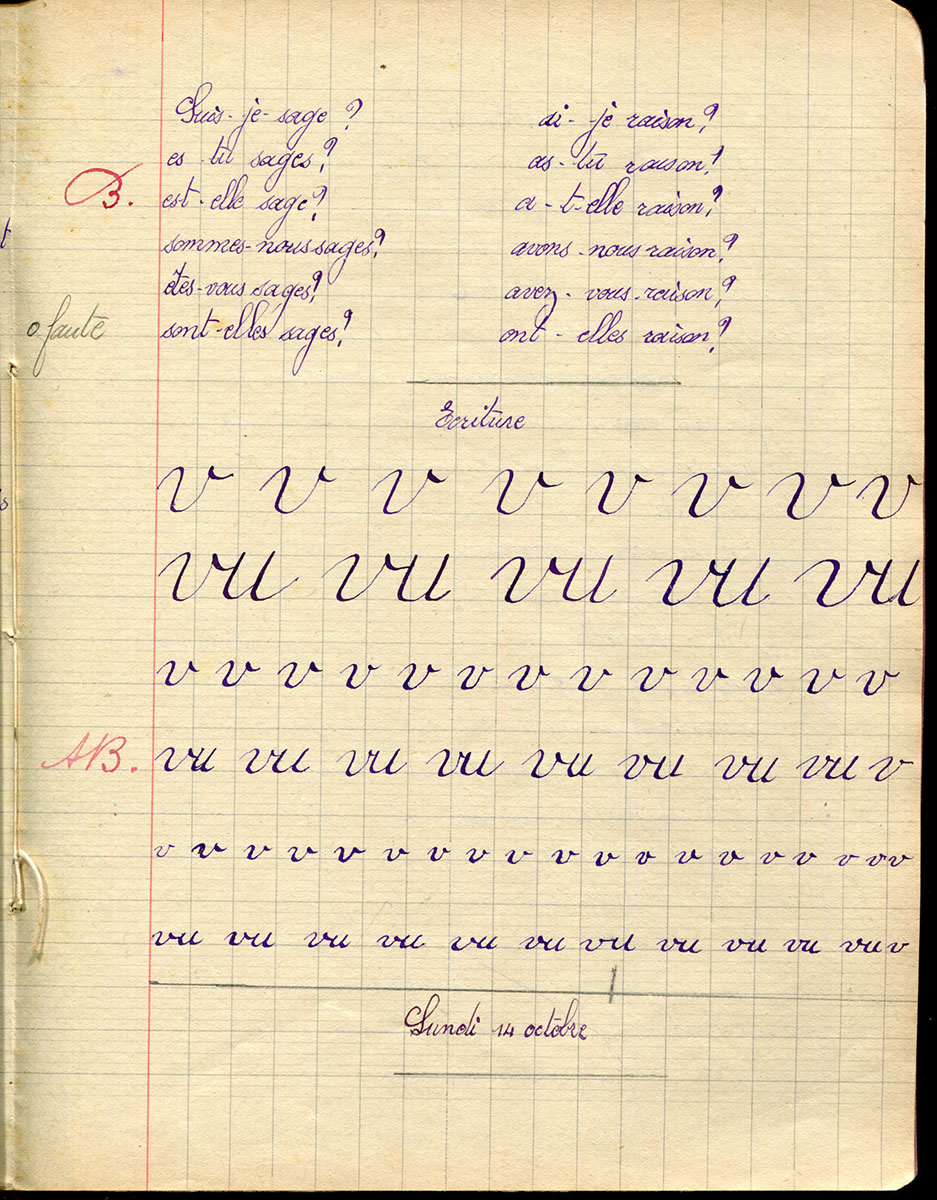 Suis-je-sage ? ai-je raison ?
es-tu sages ? as-tu raison ?
B. est-elle sage ? a-t-elle raison ?
sommes-nous sages ? avons-nous raison ?
êtes-vous sages ? avez-vous-raison ?
0 faute sont-elles sages ? ont-elles raison ?
Ecriture
v v v v v v v v
vu vu vu vu vu
v v v v v v v v v v v v v
AB. vu vu vu vu vu vu vu vu v
v v v v v v v v v v v v v v v v v v v
vu vu vu vu vu vu vu vu vu vu vu v
Lundi 14 octobre